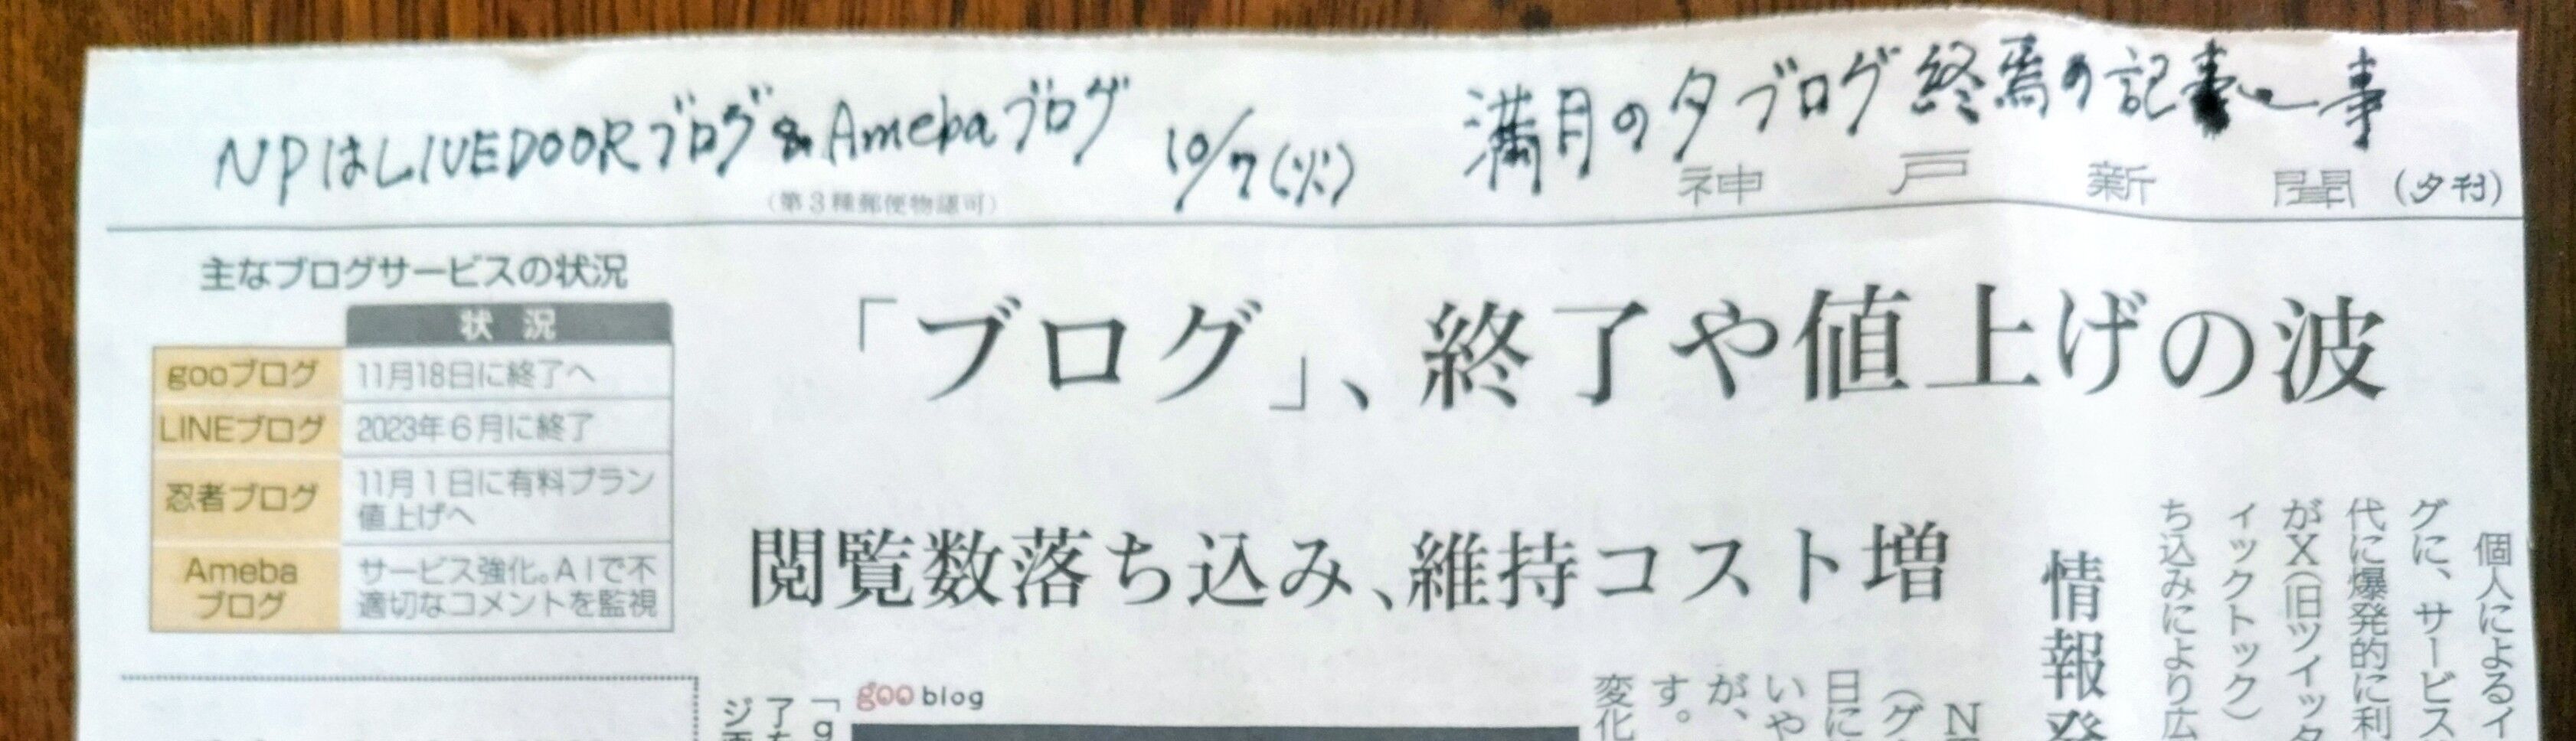 NPはLIVEDOORブログ&Amebaブログ 10/7(火) 満月の夕ブログ終焉の記事
(第3種郵便物認可)
神戸新聞 (夕刊)
主なブログサービスの状況
状況
gooブログ 11月18日に終了へ
LINEブログ 2023年6月に終了
忍者ブログ 11月1日に有料プラン
値上げへ
Amebaブログ サービス強化。AIで不
適切なコメントを監視
「ブログ」、終了や値上げの波
閲覧数落ち込み、維持コスト増
情報発
個人によるイ
グに、サービス
代に爆発的に利
がX(旧ツイッタ
ィックトック)
ち込みにより広
goo blog